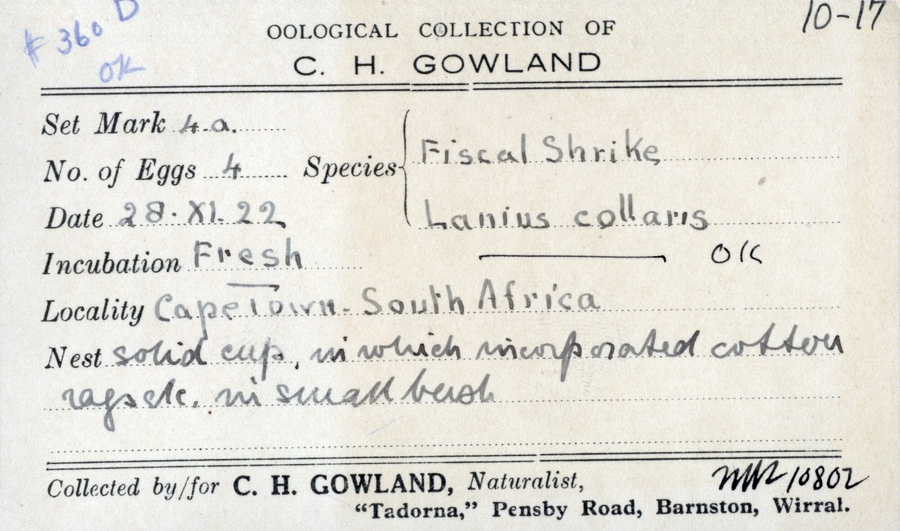 # 360 D
OK
10-17
OOLOGICAL COLLECTION OF
C. H. GOWLAND
Set Mark 4.a.
No. of Eggs 4
Date 28·XI.22
Species
Fiscal Shrike
Lanius collaris
OK
Incubation Fresh
Locality Cape Town - South Africa
Nest solid cup, in which incorporated cotton
rags etc. in small bush
Collected by/for C. H. GOWLAND, Naturalist,
"Tadorna," Pensby Road, Barnston, Wirral.
10802